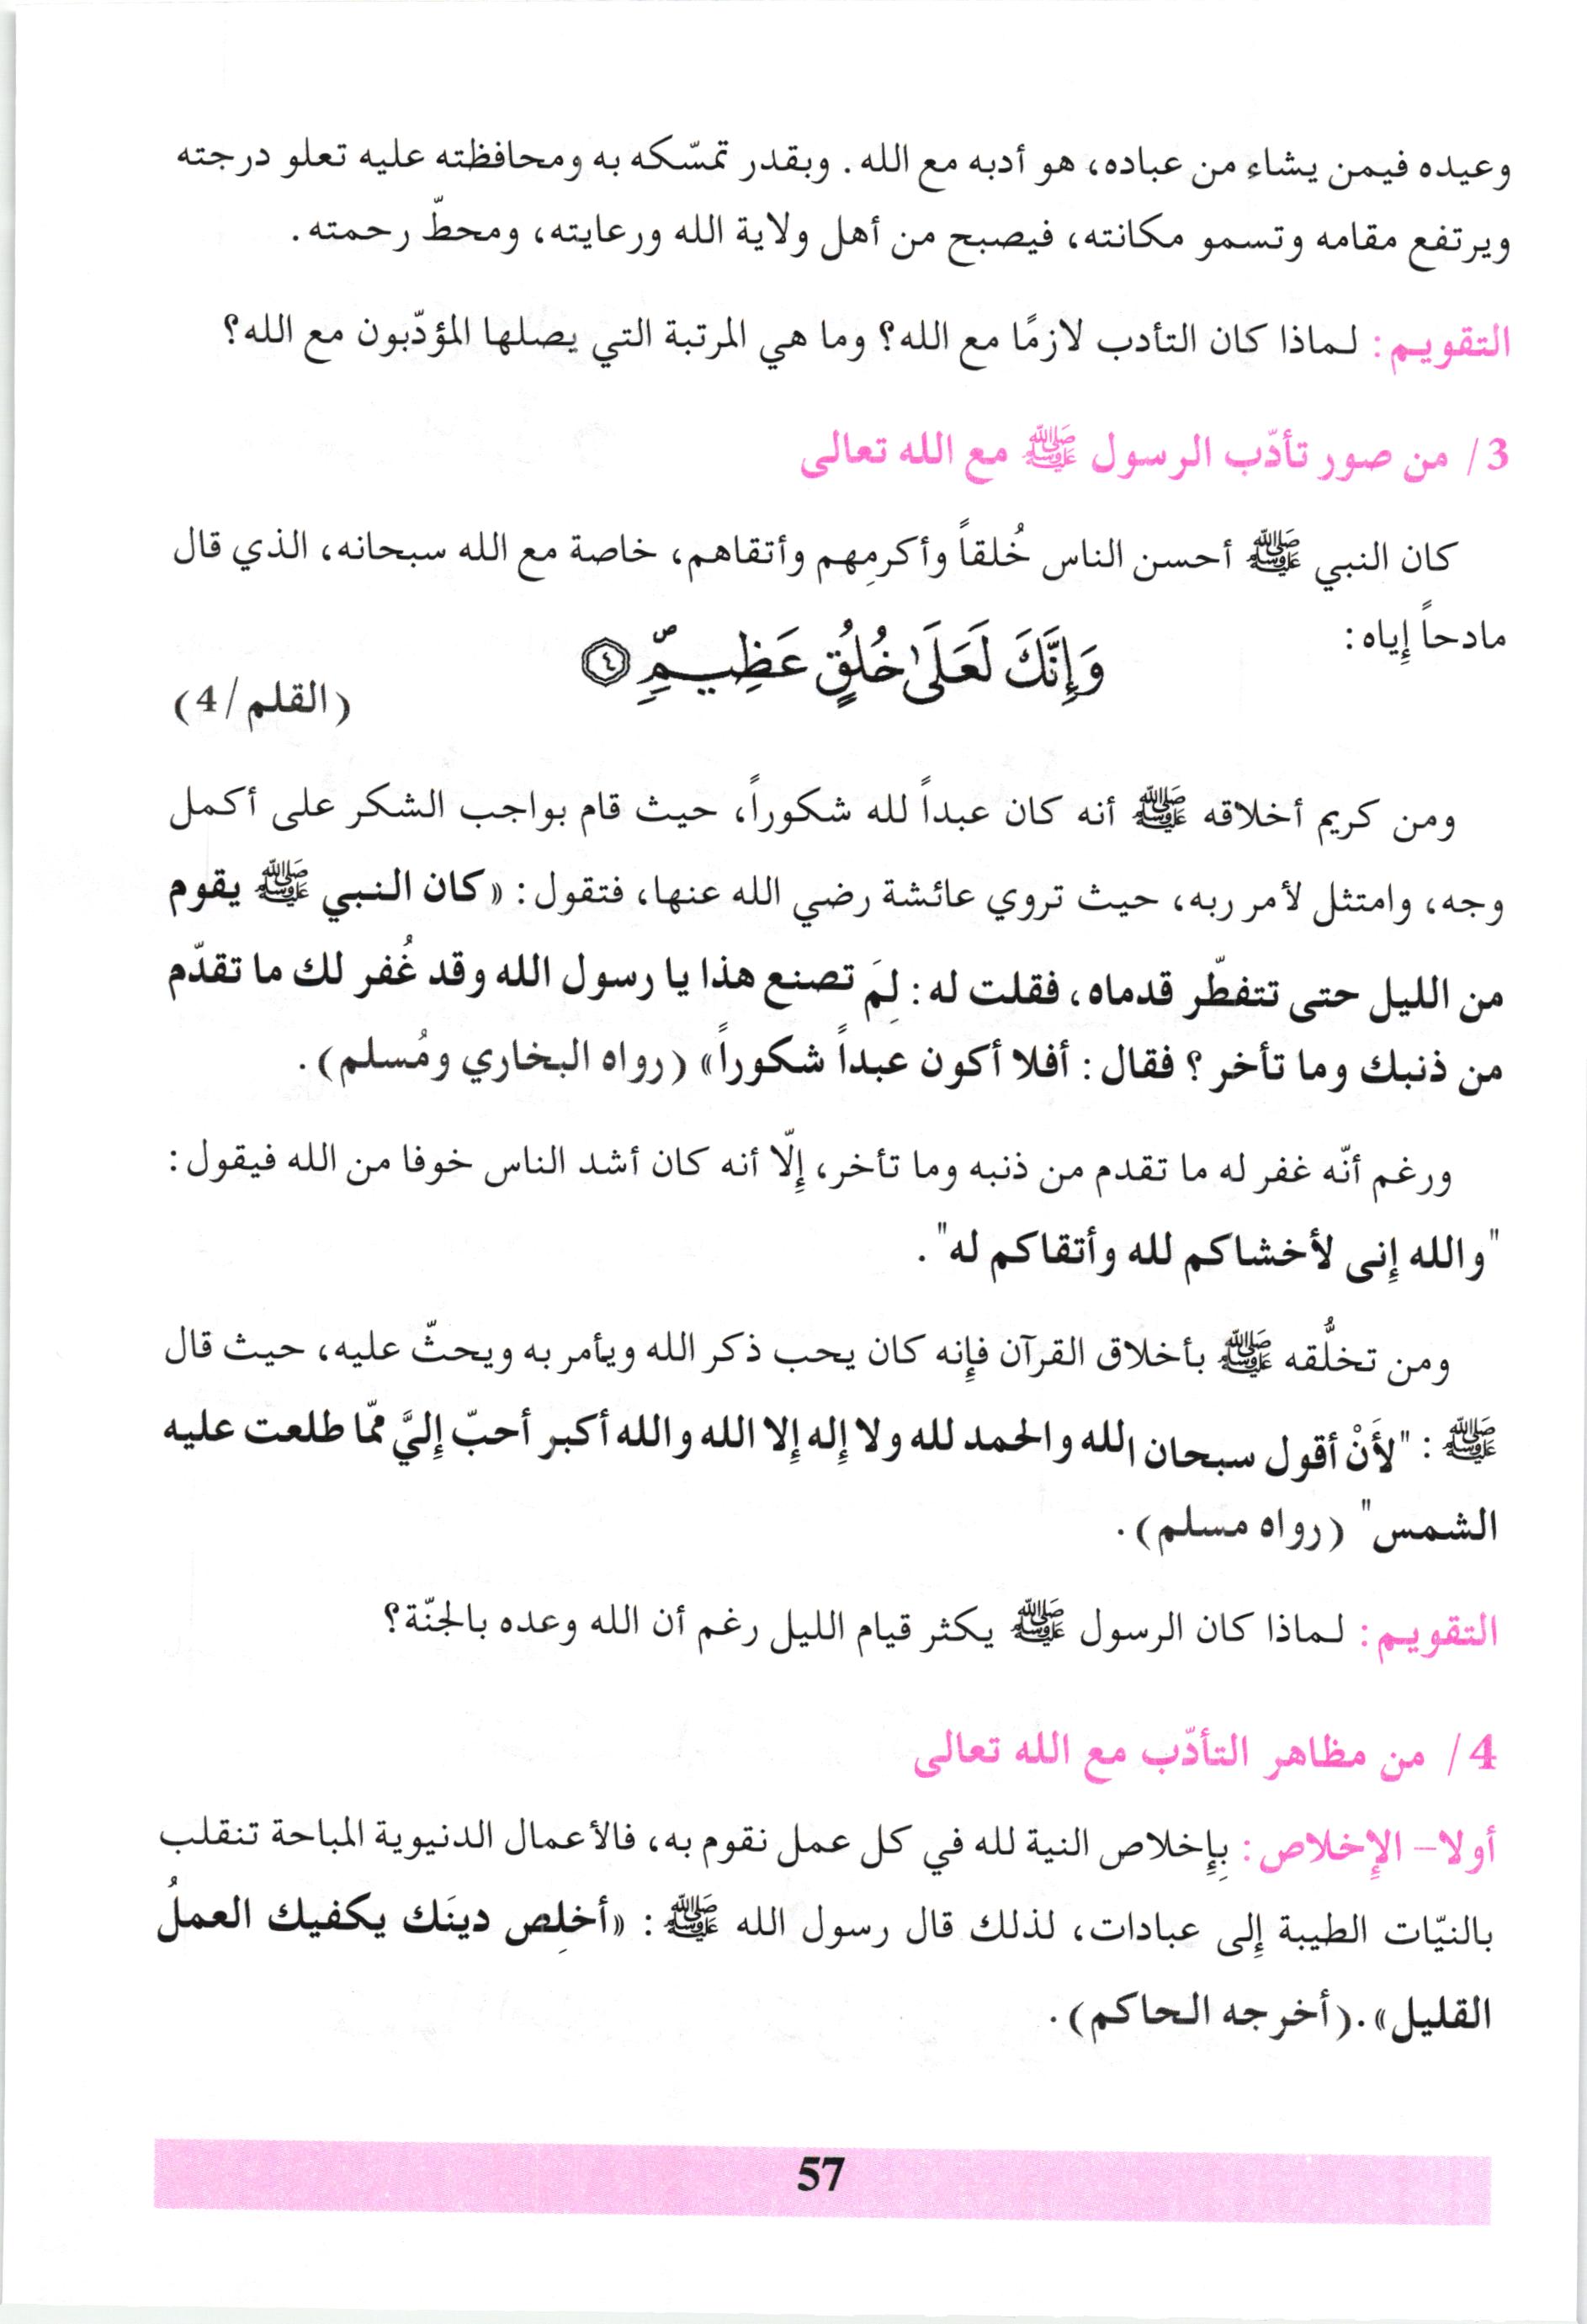 وعيده فيمن يشاء من عباده، هو أدبه مع الله. وبقدر تمسّكه به ومحافظته عليه تعلو درجته
ويرتفع مقامه وتسمو مكانته، فيصبح من أهل ولاية الله ورعايته، ومحطّ رحمته.
التقويم: لماذا كان التأدب لازمًا مع الله؟ وما هي المرتبة التي يصلها المؤدّبون مع الله؟
3/ من صور تأدّب الرسول ﷺ مع الله تعالى
كان النبي ﷺ أحسن الناس خُلقاً وأكرمِهم وأتقاهم، خاصة مع الله سبحانه، الذي قال
مادحاً إياه:
وَإِنَّكَ لَعَلَىٰ خُلُقٍ عَظِيمٍ ٤
(القلم/4)
ومن كريم أخلاقه ﷺ أنه كان عبداً لله شكوراً، حيث قام بواجب الشكر على أكمل
وجه، وامتثل لأمر ربه، حيث تروي عائشة رضي الله عنها، فتقول: «كان النبي ﷺ يقوم
من الليل حتى تتفطّر قدماه، فقلت له: لِمَ تصنع هذا يا رسول الله وقد غُفر لك ما تقدّم
من ذنبك وما تأخر؟ فقال: أفلا أكون عبداً شكوراً» (رواه البخاري ومُسلم).
ورغم أنّه غفر له ما تقدم من ذنبه وما تأخر، إلّا أنه كان أشد الناس خوفا من الله فيقول:
"والله إني لأخشاكم لله وأتقاكم له".
ومن تخلُّقه ﷺ بأخلاق القرآن فإنه كان يحب ذكر الله ويأمر به ويحثّ عليه، حيث قال
ﷺ: "لأَنْ أقول سبحان الله والحمد لله ولا إله إلا الله والله أكبر أحبّ إليَّ ممّا طلعت عليه
الشمس" (رواه مسلم).
التقويم: لماذا كان الرسول ﷺ يكثر قيام الليل رغم أن الله وعده بالجنّة؟
4/ من مظاهر التأدّب مع الله تعالى
أولا- الإخلاص: بِإخلاص النية لله في كل عمل نقوم به، فالأعمال الدنيوية المباحة تنقلب
بالنيّات الطيبة إلى عبادات، لذلك قال رسول الله ﷺ: «أخلِص دينَك يكفيك العملُ
القليل».(أخرجه الحاكم).
57